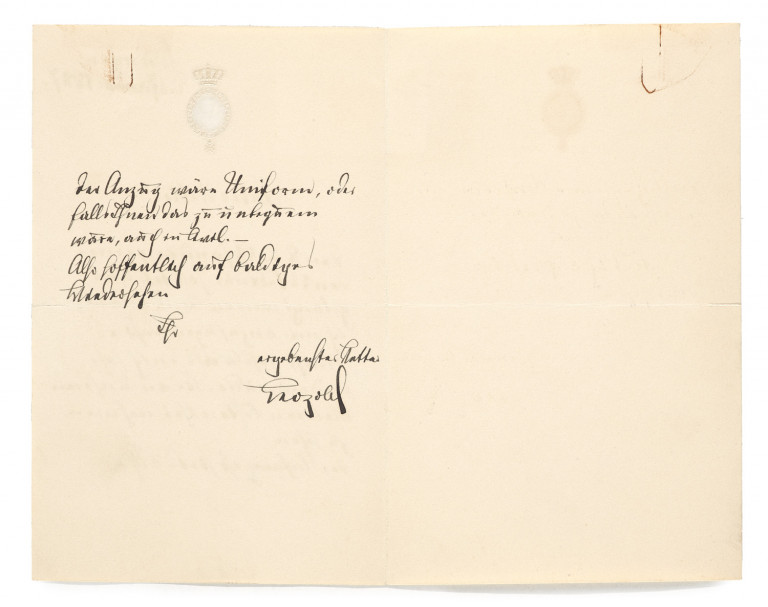 Der Anzug wäre Uniform, oder
falls Ihnen das zu unbequem
wäre, auch in Civil. —
Also hoffentlich auf baldiges
Wiedersehen
Ihr
ergebenster Vetter
Leopold